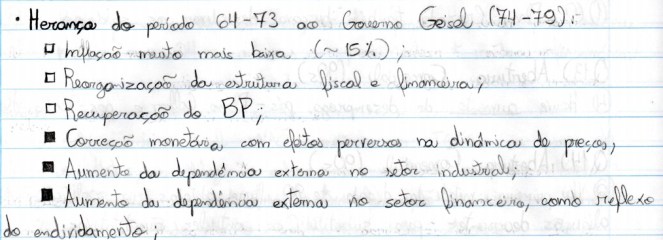 • Herança do período 64-73 ao Governo Geisel (74-79):
□ Inflação muito mais baixa (~15%);
□ Reorganização da estrutura fiscal e financeira;
□ Recuperação do BP;
■ Correção monetária com efeitos perversos na dinâmica de preços;
■ Aumento da dependência externa no setor industrial;
■ Aumento da dependência externa no setor financeiro, como reflexo
do endividamento;